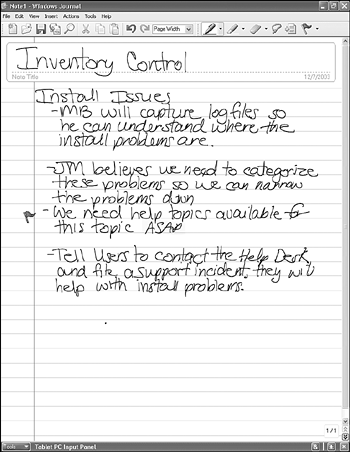 Note1 - Windows Journal
File Edit View Insert Actions Tools Help
Page Width
Inventory Control
Note Title
12/7/2003
Install Issues
-MB will capture log files so
he can understand where the
install problems are.
-JM believes we need to categorize
these problems so we can narrow
the problems down
-We need help topics available for
this topic ASAP
-Tell Users to contact the Help Desk,
and file a support incident, they will
help with install problems.
1/1
Tools
Tablet PC Input Panel